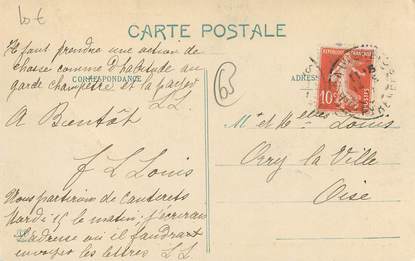 10 €
CARTE POSTALE
Il faut prendre une action de
chasse comme d'habitude au
CORRESPONDANCE
garde champêtre et la
LL.
A Bientôt
J L Louis
Nous partirons de Cauterets
Mardi 15 le matin; j'écrirai
l'adresse où il faudrait
envoyer les lettres LL
65
ADRES
10
Mr et Melles Louis
Orry la Ville
Oise